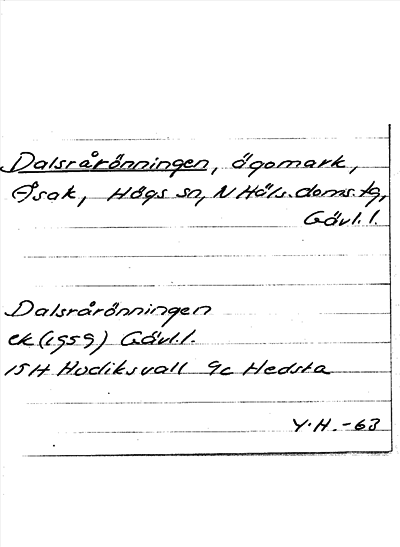 Dalsrårönningen, ägomark,
Åsak, Högs sn, N Häls. doms. tg,
Gävl. l.
Dalsrårönningen
ek (1959) Gävl. l.
15H Hudiksvall 9c Hedsta
Y.H. -63